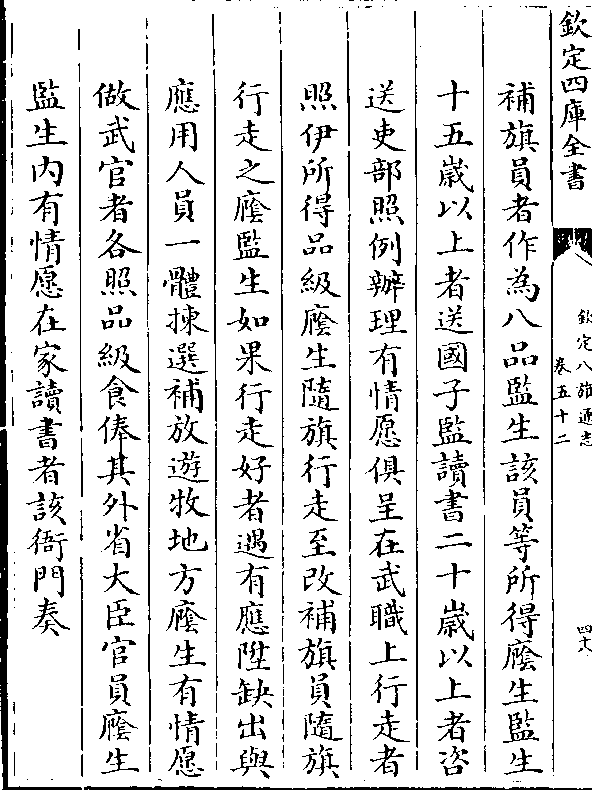 欽定四庫全書
欽定八旗通志
卷五十二
補旗員者作為八品監生該員等所得廕生監生
十五歲以上者送國子監讀書二十歲以上者咨
送吏部照例辦理有情愿俱呈在武職上行走者
照伊所得品級廕生隨旗行走至改補旗員隨旗
行走之廕監生如果行走好者遇有應陞缺出與
應用人員一體揀選補放遊牧地方廕生有情愿
做武官者各照品級食俸其外省大臣官員廕生
監生內有情愿在家讀書者該衙門奏